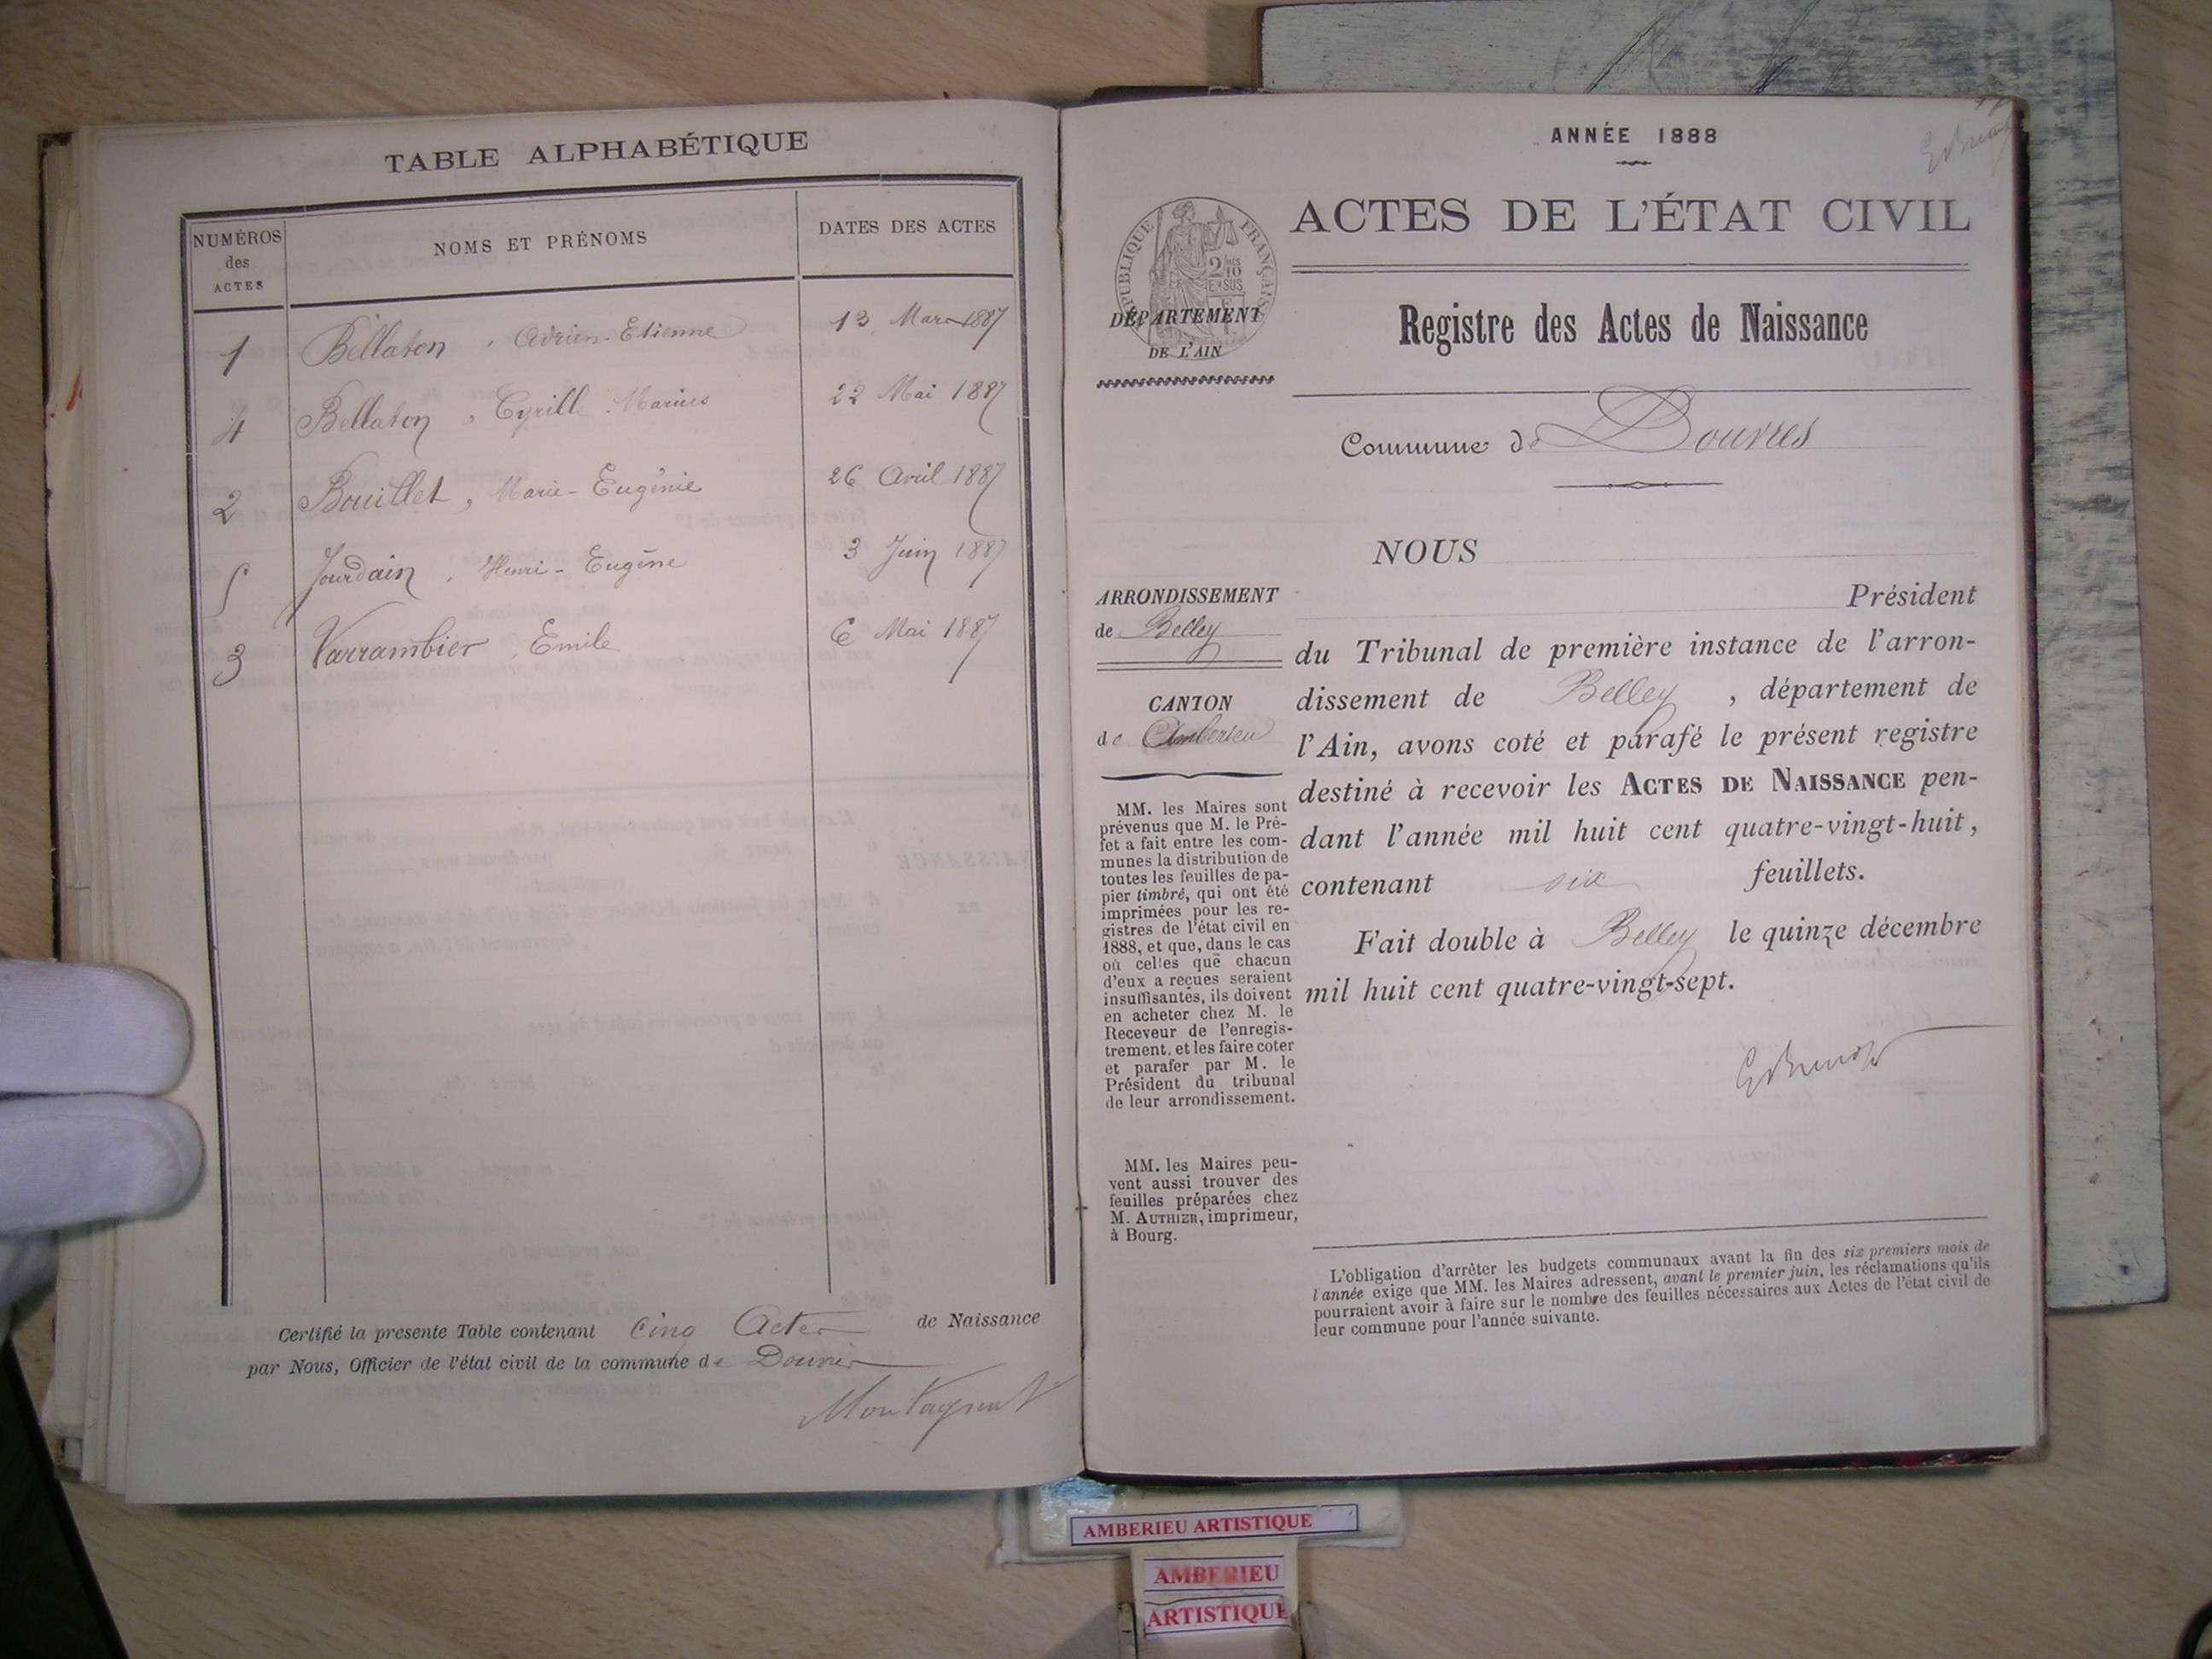 TABLE ALPHABÉTIQUE
NUMÉROS des ACTES
NOMS ET PRÉNOMS
DATES DES ACTES
1 Bellaton, Adrien-Etienne 13 Mars 1887
4 Bellaton, Cyrille Marius 22 Mai 1887
2 Bouillet, Marie-Eugénie 26 Avril 1887
5 Jourdain, Henri-Eugène 3 Juin 1887
3 Varrambier, Emile 6 Mai 1887
Certifié la presente Table contenant Cinq Actes de Naissance
par Nous, Officier de l'état civil de la commune de Douvres
Montagnat
ANNÉE 1888
ACTES DE L'ÉTAT CIVIL
RÉPUBLIQUE FRANÇAISE
DÉPARTEMENT
DE L'AIN
Registre des Actes de Naissance
Commune de Douvres
NOUS
Président
ARRONDISSEMENT
de Belley
CANTON
de Amberieu
du Tribunal de première instance de l'arron-
dissement de Belley, département de
l'Ain, avons coté et parafé le présent registre
destiné à recevoir les ACTES DE NAISSANCE pen-
dant l'année mil huit cent quatre-vingt-huit,
contenant six feuillets.
Fait double à Belley le quinze décembre
mil huit cent quatre-vingt-sept.
MM. les Maires sont
prévenus que M. le Pré-
fet a fait entre les com-
munes la distribution de
toutes les feuilles de pa-
pier timbré, qui ont été
imprimées pour les re-
gistres de l'état civil en
1888, et que, dans le cas
où celles que chacun
d'eux a reçues seraient
insuffisantes, ils doivent
en acheter chez M. le
Receveur de l'enregis-
trement, et les faire coter
et parafer par M. le
Président du tribunal
de leur arrondissement.
MM. les Maires peu-
vent aussi trouver des
feuilles préparées chez
M. AUTHIER, imprimeur,
à Bourg.
L'obligation d'arrêter les budgets communaux avant la fin des six premiers mois de
l'année exige que MM. les Maires adressent, avant le premier juin, les réclamations qu'ils
pourraient avoir à faire sur le nombre des feuilles nécessaires aux Actes de l'état civil de
leur commune pour l'année suivante.
AMBERIEU ARTISTIQUE
AMBERIEU
ARTISTIQUE